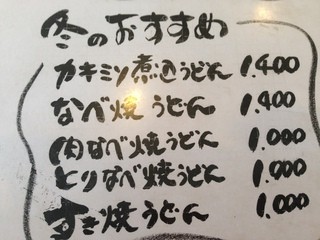 冬のおすすめ
カキミソ煮込うどん 1.400
なべ焼うどん 1.400
肉なべ焼うどん 1.000
とりなべ焼うどん 1.000
すき焼うどん 1.000